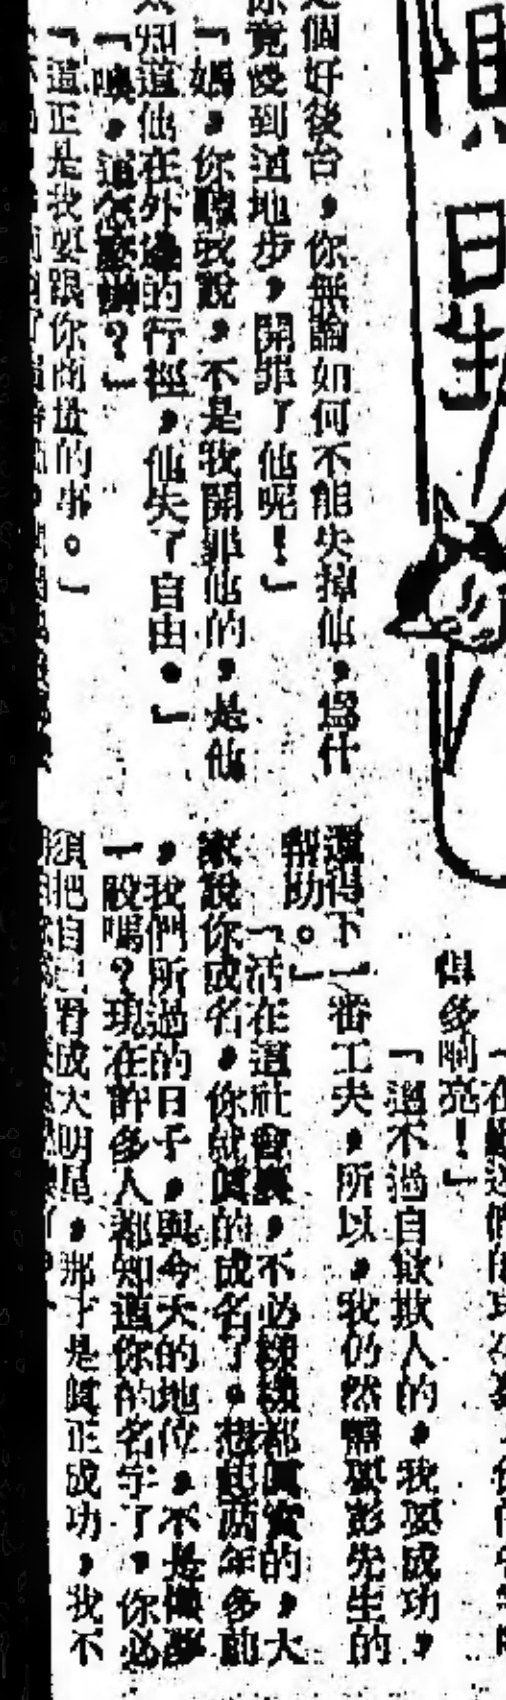 個好後台，你無論如何不能失掉他，為什
你竟變到這地步，開罪了他呢！」
「媽，你聽我說，不是我開罪他的，是他
知道他在外邊的行徑，他失了自由。」
「噢，這怎麼辦？」
「這正是我要跟你商量的事。」
但多響亮！」
「這不過自欺欺人的，我要成功，
還得下一番工夫，所以，我仍然需要彭先生的
幫助。」
「活在這社會裏，不必樣樣都真實的，大
家說你成名，你就真的成名了，想起兩年多前
，我們所過的日子，與今天的地位，不是像夢
一般嗎？現在許多人都知道你的名字了，你必
須把自己看成大明星，那才是真正成功，我不